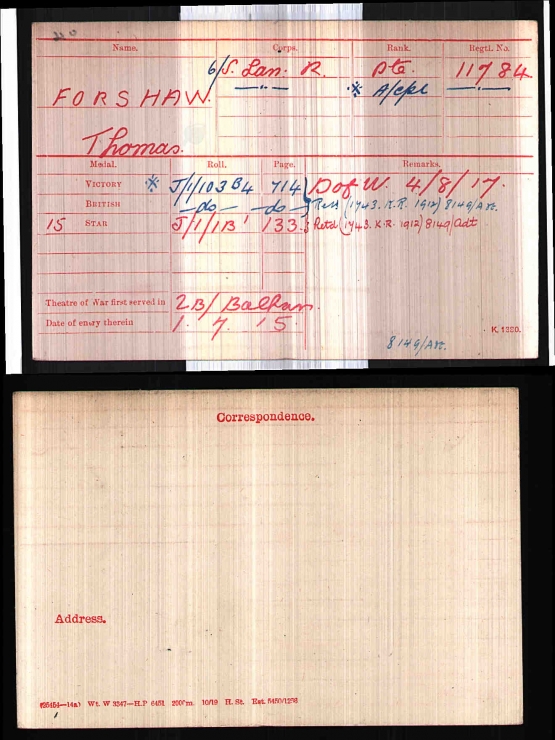 Name. Corps. Rank. Regtl. No.
6/S. Lan. R. Pte. 11784.
FORSHAW. —"— ※ A/Cpl —"—
Thomas.
Medal. Roll. Page. Remarks.
VICTORY ※ J/1/103B4 714 D of W. 4/8/17.
BRITISH —do— —do— Retd (1743. K.R. 1912) 8149/Adt.
15 STAR J/1/1B' 133. Retd (1743. K.R. 1912) 8149/Adt
Theatre of War first served in 2B/ Balkan.
Date of entry therein 1. 7. 15.
K. 1380.
8149/Adt.
Correspondence.
Address.
Wt. W 3347—H.P 6451 200m. 10/19 H. St. Est.